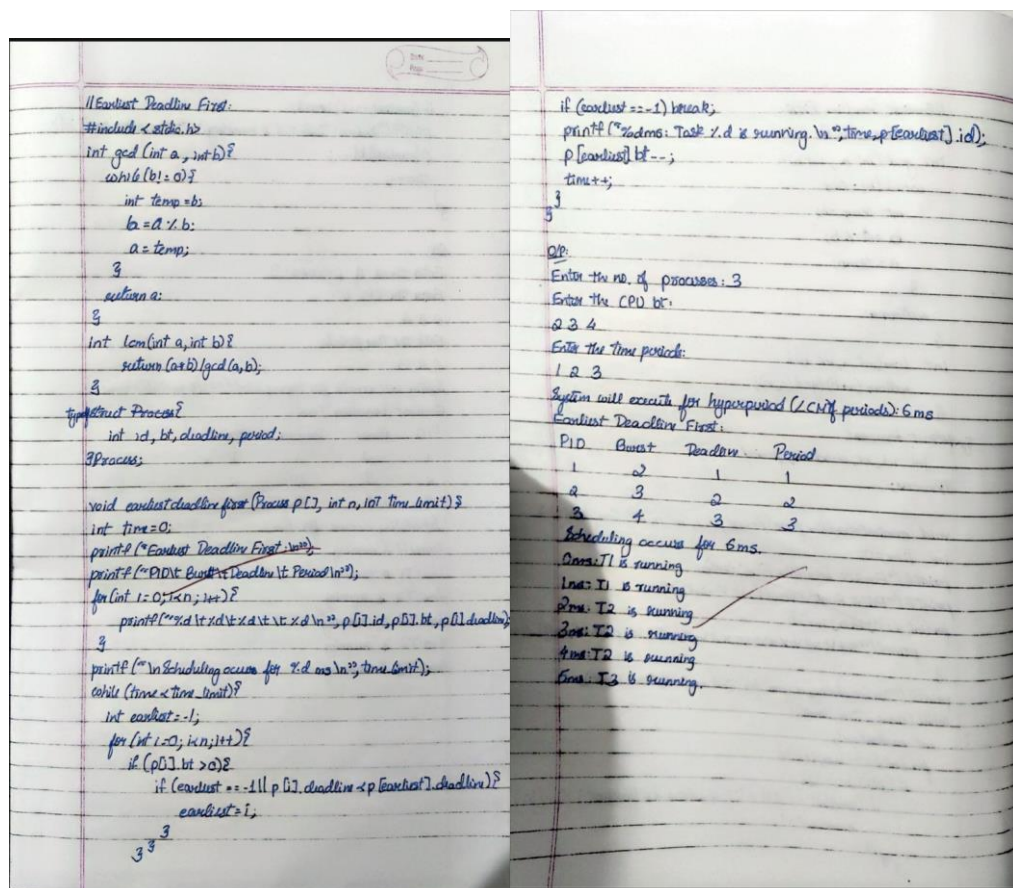 Date
Page
//Earliest Deadline First:
#include <stdio.h>
int gcd (int a, int b){
while (b!=0){
int temp=b;
b=a%b;
a=temp;
}
return a;
}
int lcm(int a, int b){
return (a*b)/gcd(a,b);
}
typedef struct Process{
int id, bt, deadline, period;
}Process;
void earliestdeadlinefirst (Process p[], int n, int time_limit){
int time=0;
printf("Earliest Deadline First:\n");
printf("PID\t Burst\t Deadline\t Period\n");
for(int i=0; i<n; i++){
printf("%d\t%d\t%d\t\t%d\n", p[i].id, p[i].bt, p[i].deadline,
}
printf("\n Scheduling occurs for %d ms\n", time_limit);
while (time<time_limit){
int earliest=-1;
for (int i=0; i<n; i++){
if (p[i].bt >0){
if (earliest ==-1|| p[i].deadline <p[earliest].deadline){
earliest=i;
}
} }
if (earliest ==-1) break;
printf("%dms: Task %d is running.\n", time, p[earliest].id);
p[earliest].bt--;
time++;
}
}
O/P:
Enter the no. of processes: 3
Enter the CPU bt:
2 3 4
Enter the time periods:
1 2 3
System will execute for hyperperiod (LCM of periods): 6ms
Earliest Deadline First:
PID Burst Deadline Period
1 2 1 1
2 3 2 2
3 4 3 3
Scheduling occurs for 6ms.
0ms: T1 is running
1ms: T1 is running
2ms: T2 is running
3ms: T2 is running
4ms: T2 is running
5ms: T3 is running.